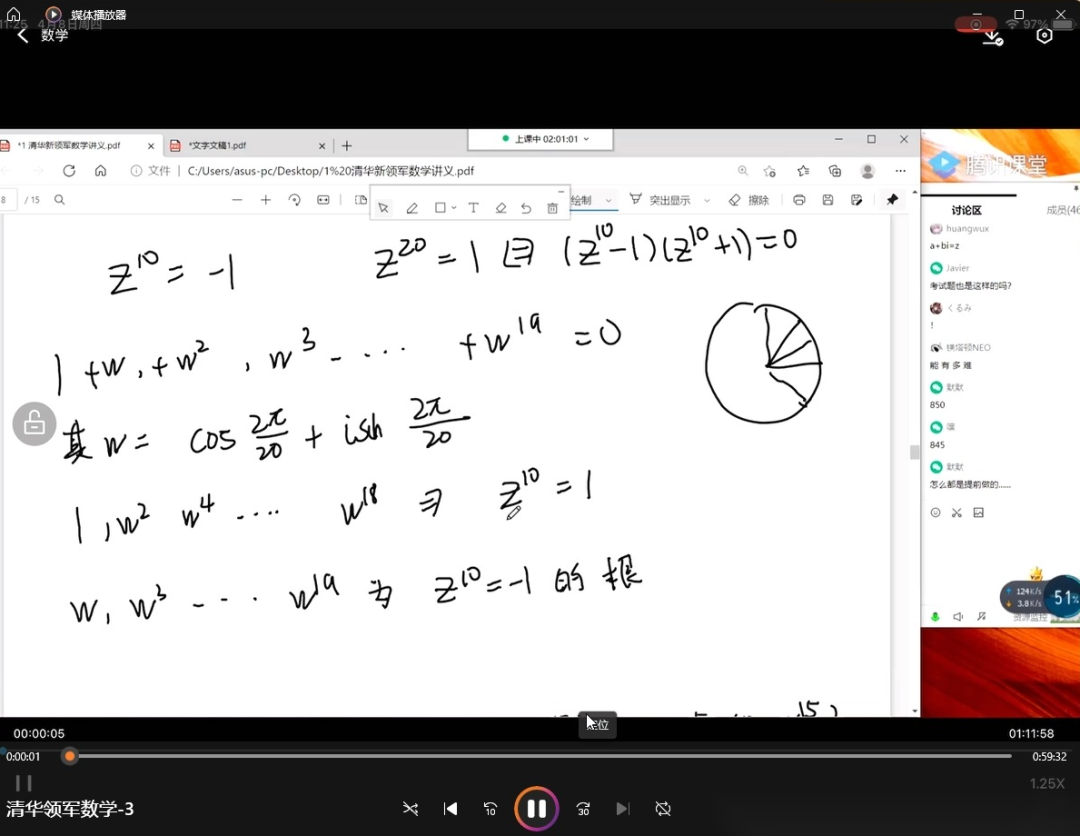 媒体播放器
11:25 4月8日周四
97%
数学
*1 清华新领军数学讲义.pdf
*文字文稿1.pdf
上课中 02:01:01
文件 | C:/Users/asus-pc/Desktop/1%20清华新领军数学讲义.pdf
8 / 15
T
绘制
突出显示
擦除
腾讯课堂
z^10 = -1
z^20 = 1 (z^10-1)(z^10+1)=0
1 + w, + w^2, w^3 - ... + w^19 = 0
其 w = cos 2π/20 + isin 2π/20
1, w^2 w^4 .... w^18 ⇒ z^10 = 1
w, w^3 - - - . w^19 为 z^10 = -1 的根
15
讨论区
成员(46
huangwux
a+bi=z
Javier
考试题也是这样的吗?
くるみ
!
横塔顿NEO
能有多难
默默
850
嘿
845
默默
怎么都是提前做的......
124K/s
3.8K/s
51%
资源监控
00:00:05
01:11:58
0:00:01
0:59:32
1.25X
清华领军数学-3
10
30